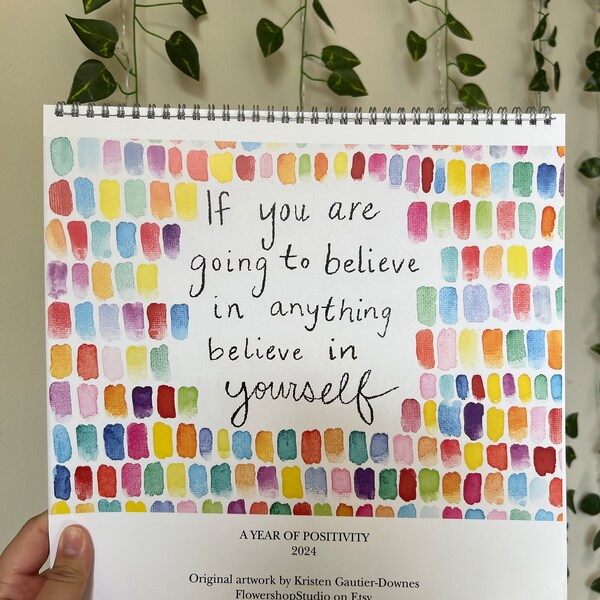 If you are
going to believe
in anything
believe in
yourself
A YEAR OF POSITIVITY
2024
Original artwork by Kristen Gautier-Downes
FlowershopStudio on Etsy